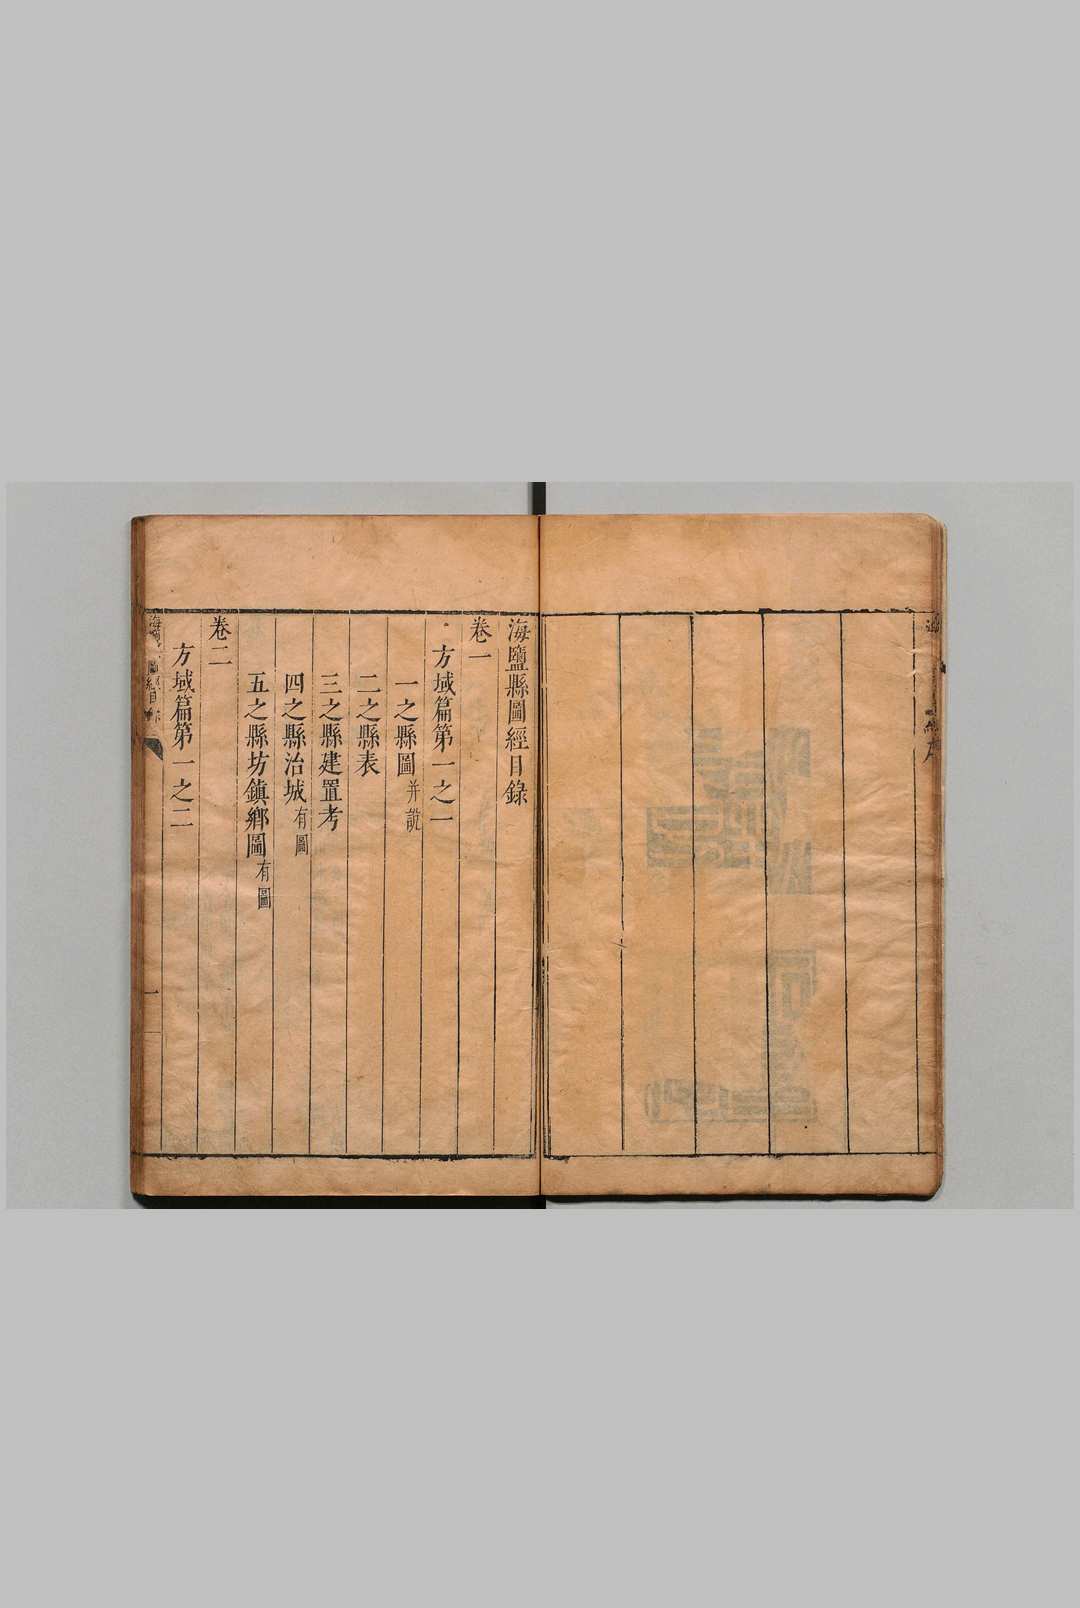 海鹽縣圖經目錄
卷一
方域篇第一之一
一之縣圖并說
二之縣表
三之縣建置考
四之縣治城有圖
五之縣坊鎮鄉圖有圖
卷二
方域篇第一之二
一